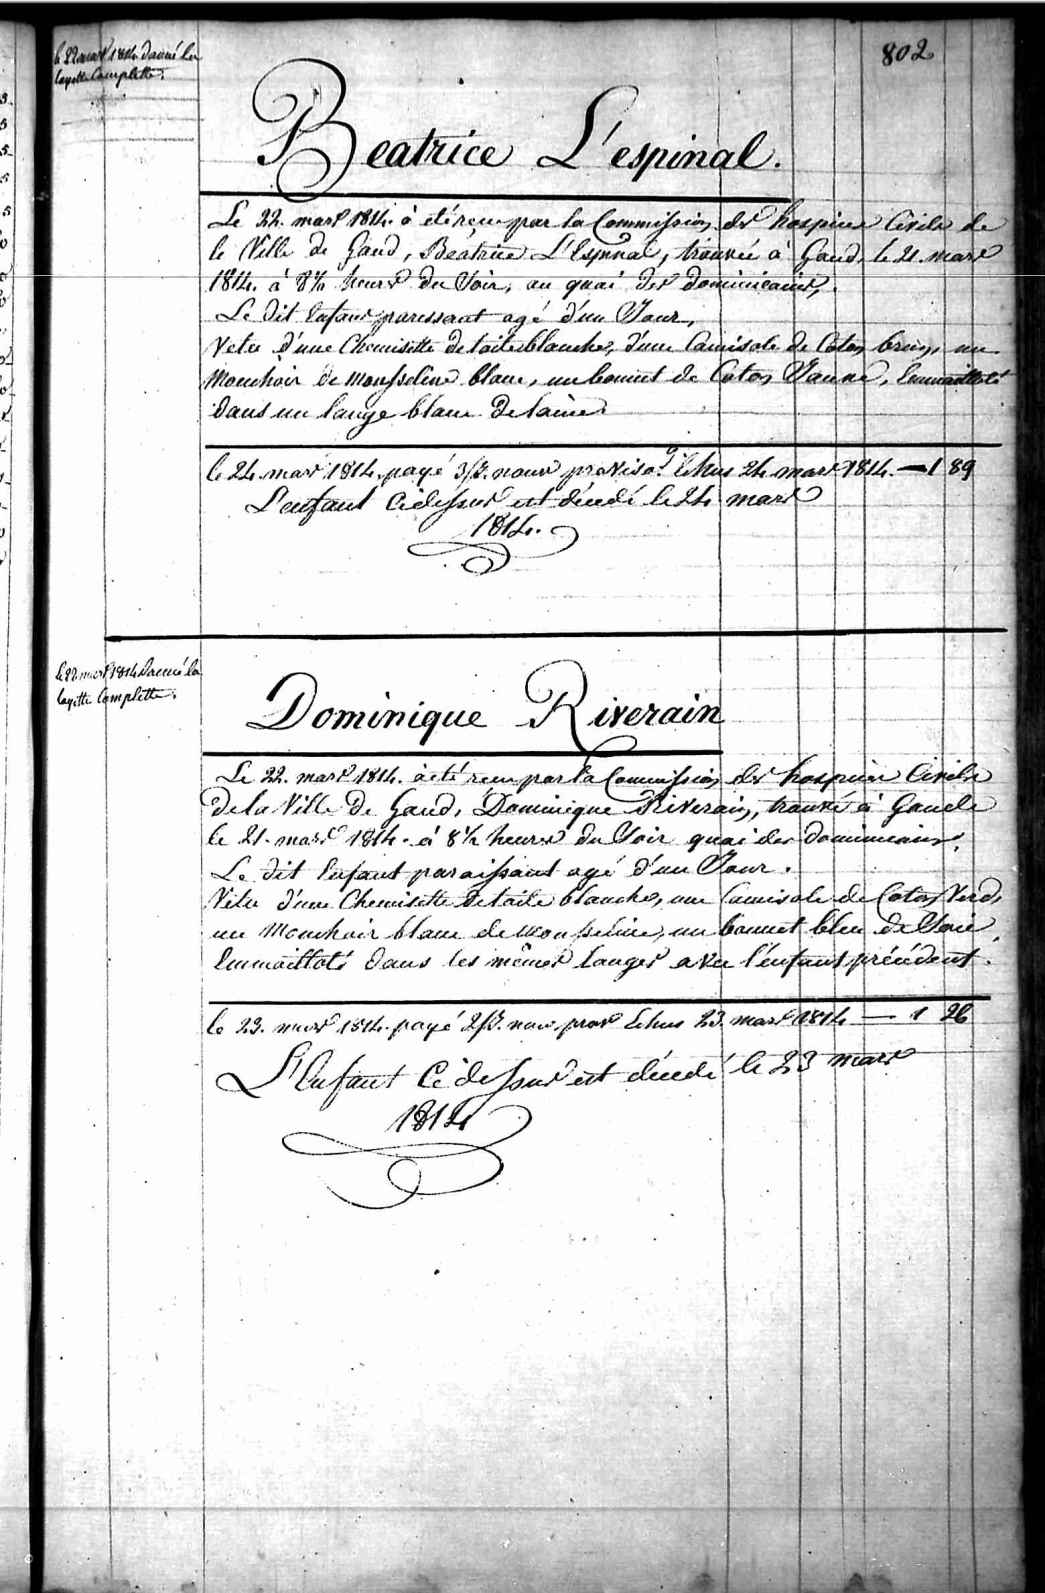 802
le 22 mars 1814 donné la
layette Complette.
Beatrice L'espinal.
Le 22. mars 1814. à été reçue par la Commission des hospices Civils de
la Ville de Gand, Beatrice L'Espinal, trouvée à Gand, le 21. mars
1814. à 8½ heures du Soir, au quai des dominicains,
Le dit Enfant paressant agé d'un Jour,
Vetu d'une Chemisette de toile blanche, d'une Camisole de Coton brun, un
Mouchoir de Mousseline blanc, un bonnet de Coton Jaune, Emmailloté
dans un lange blanc de laine.
le 24 mars 1814. payé 3/J. nour proviso. Echus 24 mars 1814. — 1 89
L'enfant Cidessus est décedé le 24 mars
1814.
le 22 mars 1814 donné la
layette Complette.
Dominique Riverain
Le 22. mars 1814. à été reçu par la Commission des hospices Civils
de la Ville de Gand, Dominique Riverain, trouvé à Gand
le 21. mars 1814. à 8½ heures du Soir quai des dominicains.
Le dit Enfant paraissant agé d'un Jour.
Vetu d'une Chemisette de toile blanche, une Camisole de Coton Verd,
un Mouchoir blanc de mousseline, un bonnet bleu de Soie,
Emmailloté dans les mêmes langes avec l'enfant précédent.
le 23. mars 1814. payé 2/J. nour prov Echus 23 mars 1814 — 1 26
L'Enfant Cidessus est décedé le 23 mars
1814